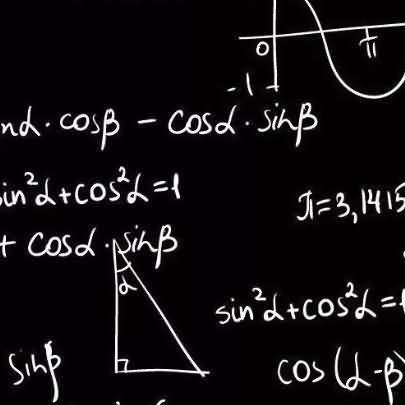 0 π
-1
nα · cosβ - cosα · sinβ
sin²α+cos²α=1
π=3,1415
+ cosα · sinβ
α
sin²α+cos²α=1
sinβ
cos(α-β